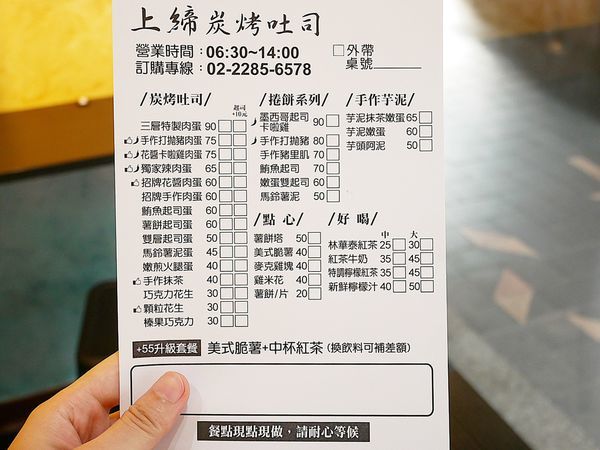 上締炭烤吐司
營業時間：06:30~14:00
訂購專線：02-2285-6578
□外帶
桌號
/炭烤吐司/
起司
+10元
三層特製肉蛋 90
手作打拋豬肉蛋 75
花醬卡啦雞肉蛋 75
獨家辣肉蛋 65
招牌花醬肉蛋 60
招牌手作肉蛋 60
鮪魚起司蛋 60
薯餅起司蛋 60
雙層起司蛋 50
馬鈴薯泥蛋 45
嫩煎火腿蛋 40
手作抹茶 40
巧克力花生 30
顆粒花生 30
榛果巧克力 30
/捲餅系列/
墨西哥起司
卡啦雞 90
手作打拋豬 80
手作豬里肌 70
鮪魚起司 70
嫩蛋雙起司 60
馬鈴薯泥 50
/手作芋泥/
芋泥抹茶嫩蛋 65
芋泥嫩蛋 60
芋頭阿泥 50
/點心/
薯餅塔 50
美式脆薯 40
麥克雞塊 40
雞米花 40
薯餅/片 20
/好喝/
中 大
林華泰紅茶 25 30
紅茶牛奶 35 45
特調檸檬紅茶 35 45
新鮮檸檬汁 40 50
+55升級套餐 美式脆薯+中杯紅茶(換飲料可補差額)
餐點現點現做，請耐心等候